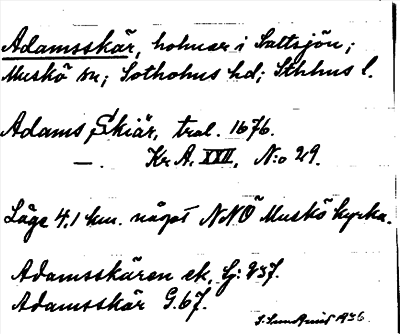 Adamsskär, holmar i Saltsjön;
Muskö sn; Sotholms hd; Sthlms l.
Adams Skiär, tral. 1676.
—. Kr. A. XVII, N:o 29.
Läge 4,1 km. något NNÖ Muskö kyrka.
Adamsskären ek.
Adamsskär G. 67.
1936.